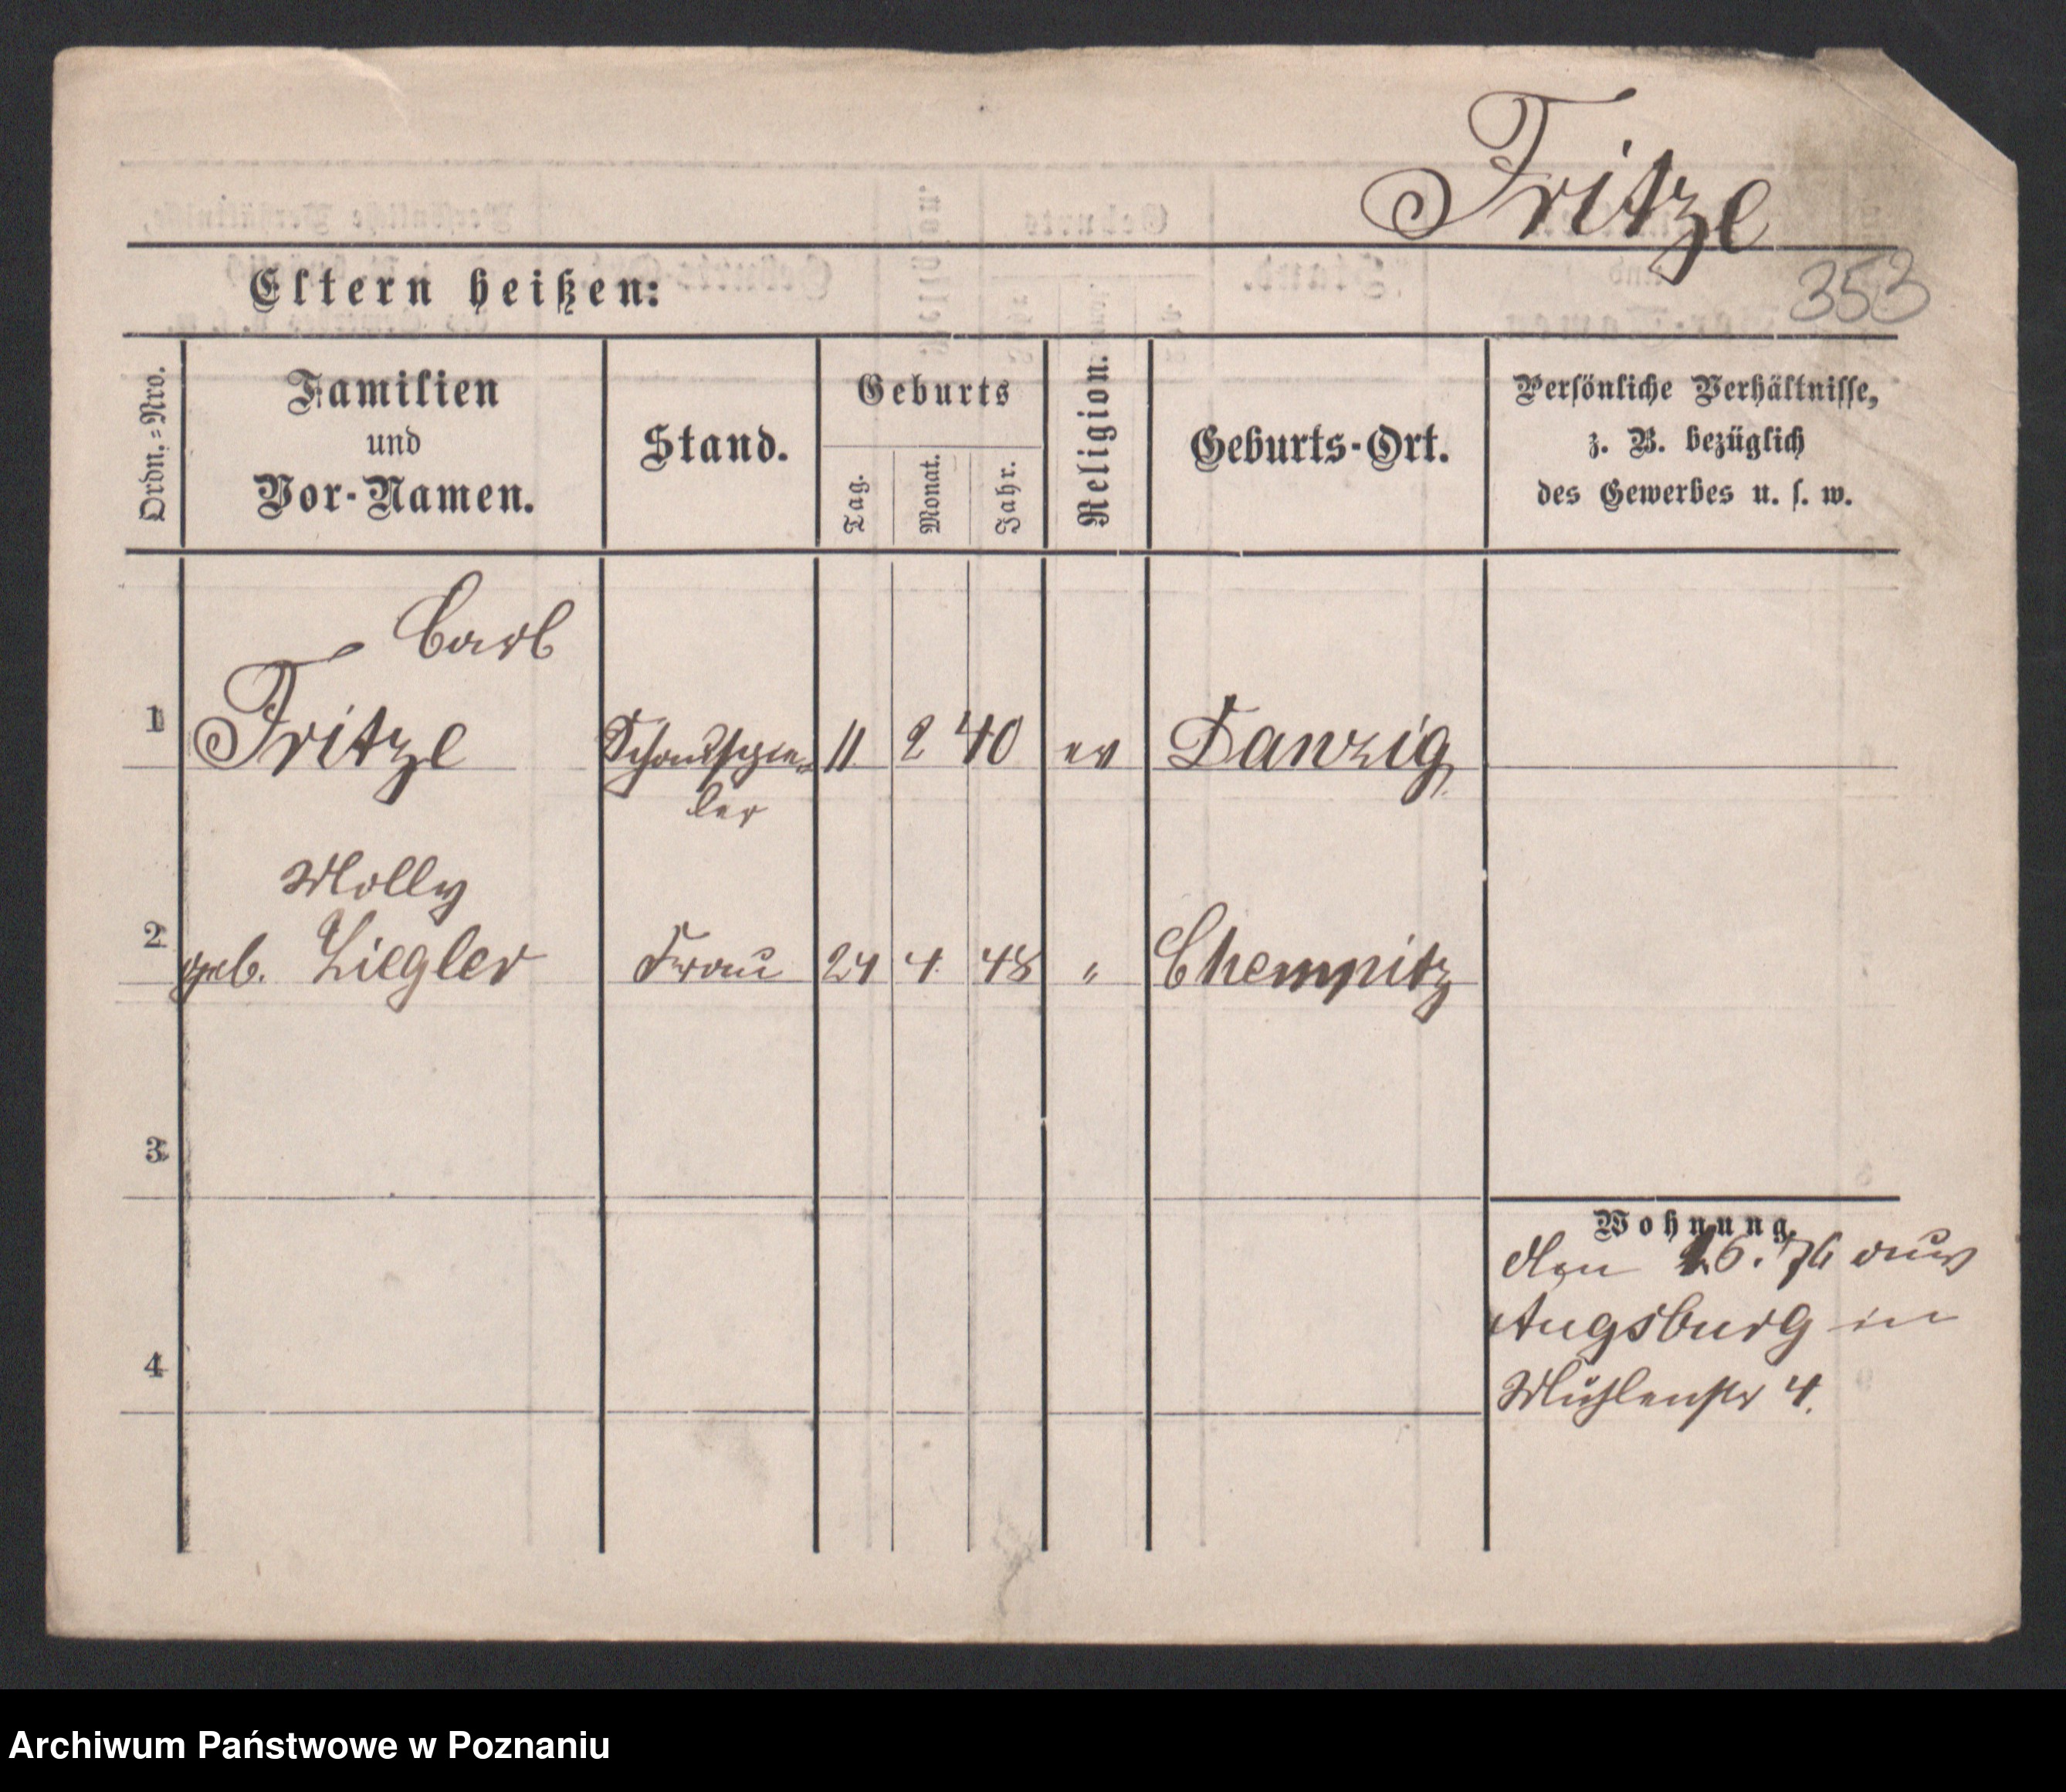 Fritze
353
Eltern heißen:
Ordn.=Nro.
Familien
und
Vor-Namen.
Stand.
Geburts
Tag.
Monat.
Jahr.
Religion.
Geburts-Ort.
Persönliche Verhältnisse,
z. B. bezüglich
des Gewerbes u. s. w.
Carl
1 Fritze Schauspie- 11 2 40 ev Danzig
ler
Molly
2 geb. Ziegler Frau 24 4. 48 " Chemnitz
3
Wohnung.
den 76 aus
Augsburg in
4
Mühlenstr 4.
Archiwum Państwowe w Poznaniu